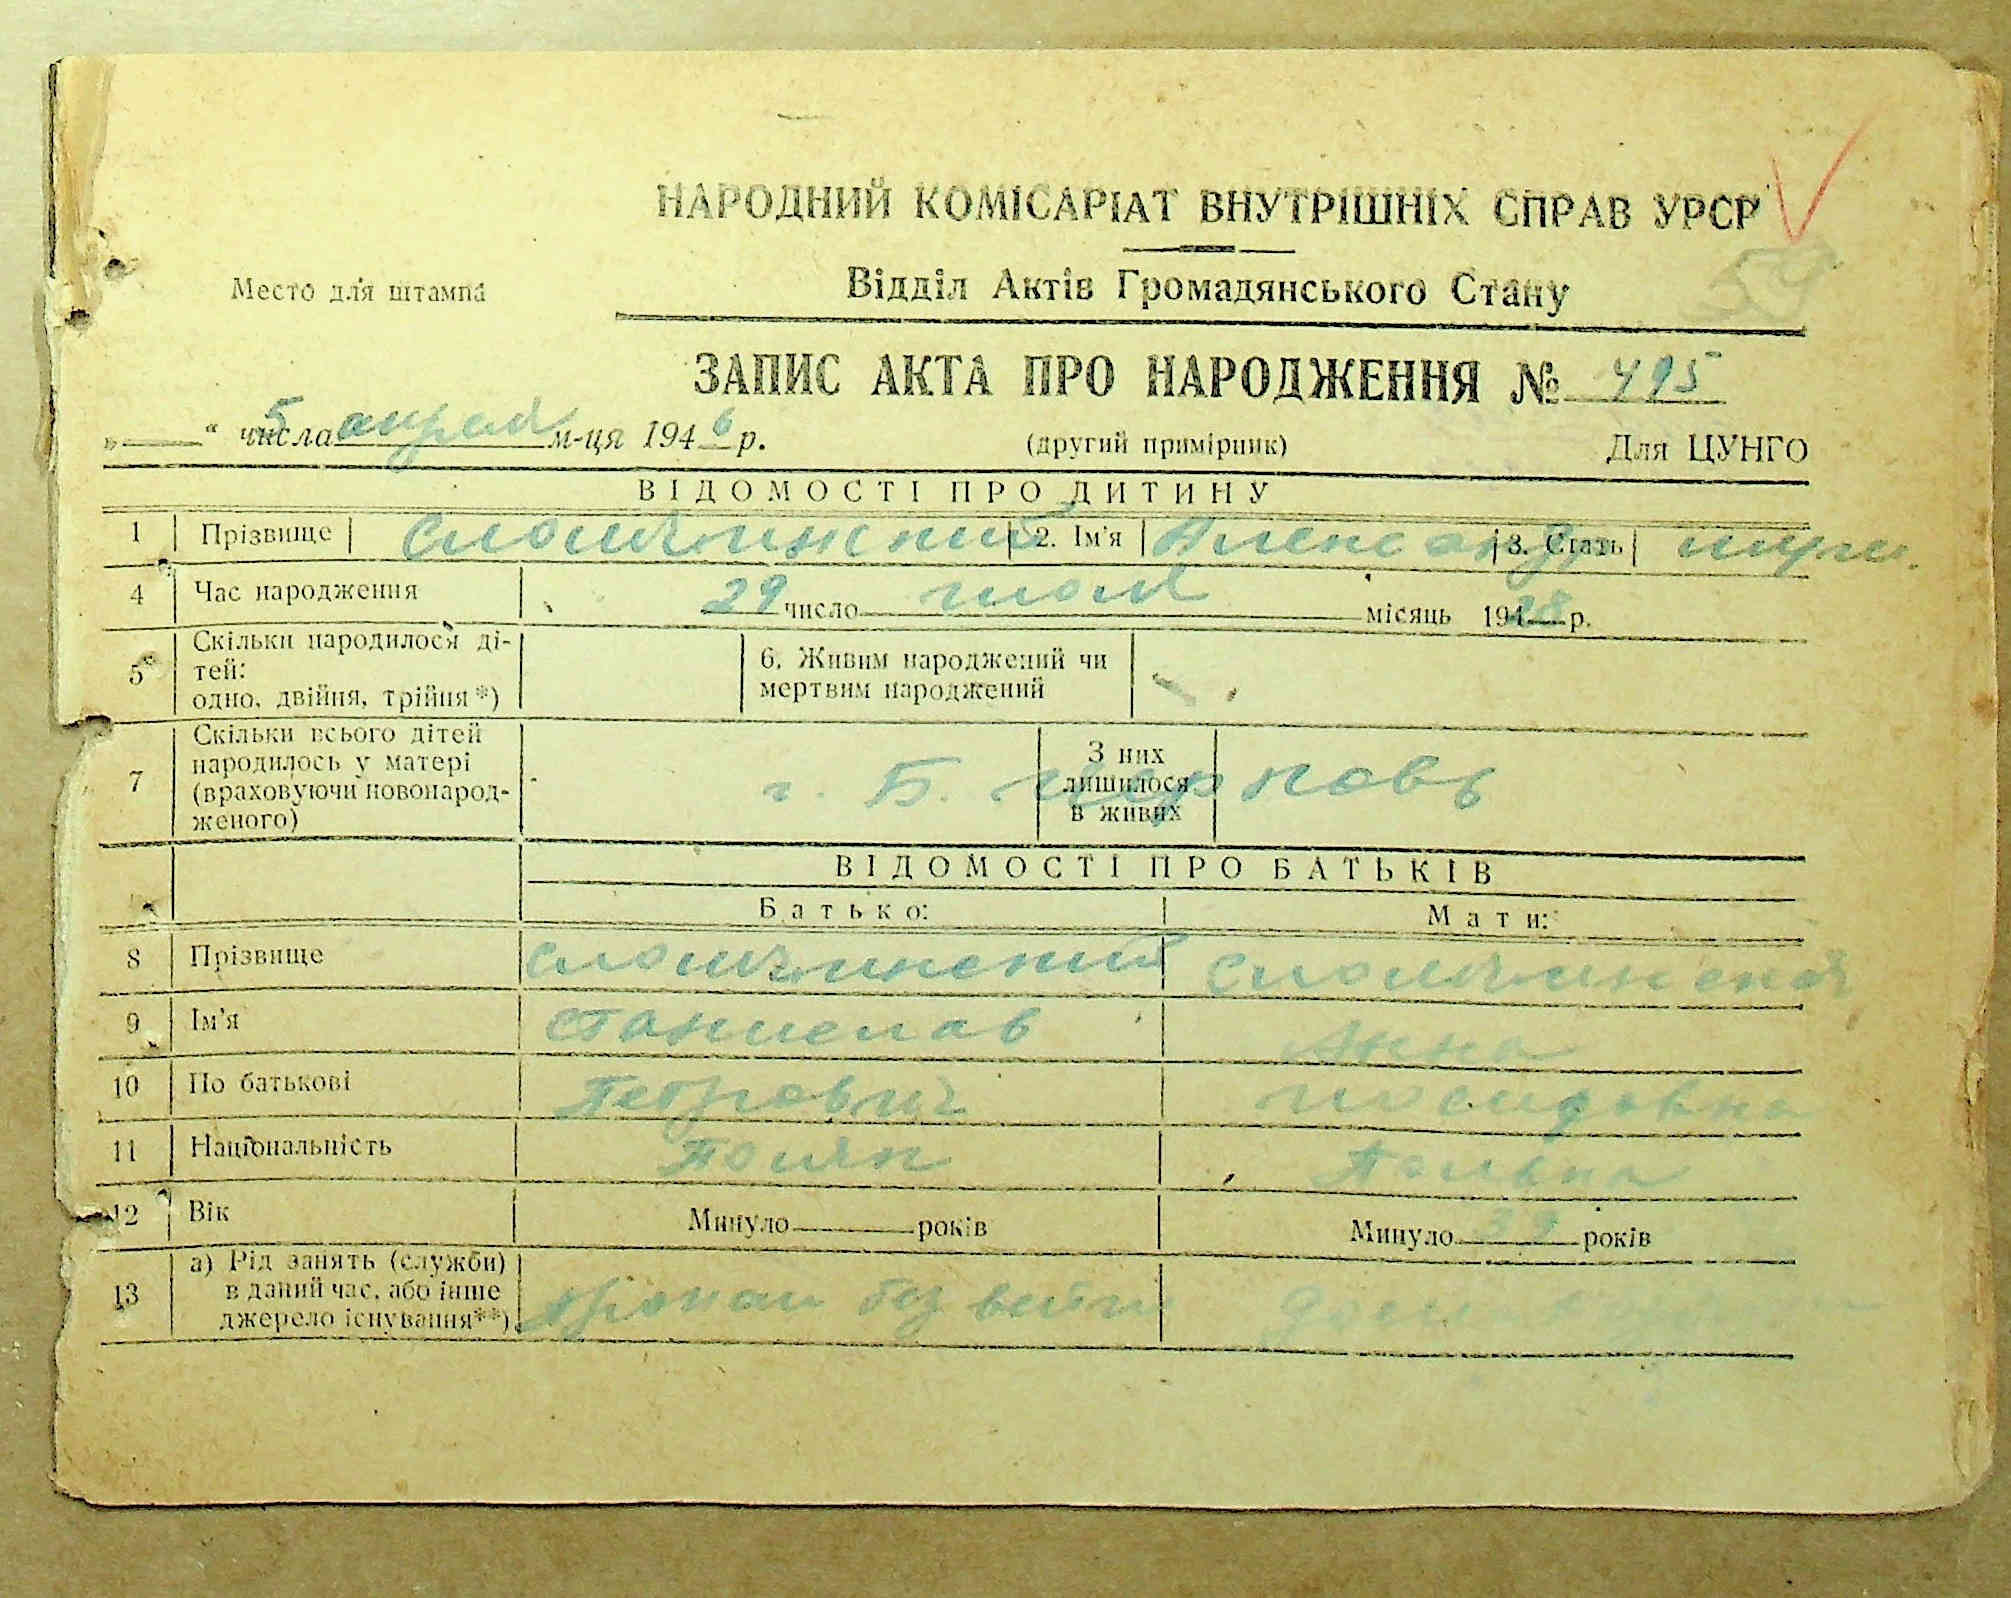 НАРОДНИЙ КОМІСАРІАТ ВНУТРІШНІХ СПРАВ УРСР
59
Место для штампа
Відділ Актів Громадянського Стану
ЗАПИС АКТА ПРО НАРОДЖЕННЯ № 495
„ “ 5 числа апреля м-ця 1946 р. (другий примірник) Для ЦУНГО
ВІДОМОСТІ ПРО ДИТИНУ
1 Прізвище Сломчинский 2. Ім'я Александр 3. Стать муж.
4 Час народження 29 число июля місяць 1928 р.
5 Скільки народилося ді-
тей:
одно, двійня, трійня*) 6. Живим народжений чи
мертвим народжений
7 Скільки всього дітей
народилось у матері
(враховуючи новонарод-
женого) г. Б. Церковь З них
лишилося
в живих
ВІДОМОСТІ ПРО БАТЬКІВ
Батько: Мати:
8 Прізвище Сломчинский Сломчинская
9 Ім'я Станислав Анна
10 По батькові Петрович Иосифовна
11 Національність Поляк Полька
12 Вік Минуло років Минуло років
13 а) Рід занять (служби)
в даний час, або інше
джерело існування**) пропал без вести